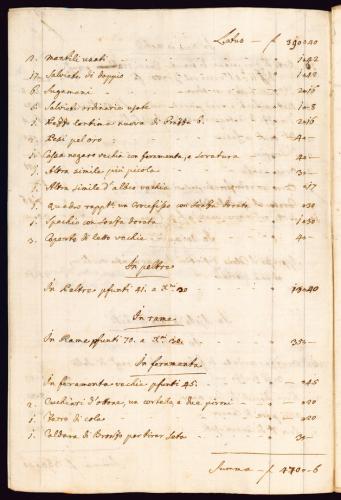 Latus — f 390.40
12. Mantili usati 1.42
12. Salviete di doppio 1.42
6. Sugamani 2.16
6. Salviete ordinarie usate 1.8
1. nuova di Prazza 6. 2.16
1. Pesi pel oro 4.—
1. Cassa nogaro vechia con feramenta, e seratura 4.—
1. Altra simile più picola 3.—
1. Altra simile d'albeo vechia .17
1. Quadro rappte un Crocefisso con Soaza dorata .30
1. Spechio con Soaza dorata 1.30
3. Coperte di letto vechie 4.—
In peltro
In Peltro pfunti 41. a Xni 20 13.40
In rame
In Rame pfunti 70. a Xni 30. 35.—
In feramenta
In feramenta vechia pfunti 45. .45
2. Cuchiari d'ottone, un cortelo, e due pironi .20
1. Ferro di cola .20
1. Caldara di Bronzo per tirar Seta 3.—
Summa — f 470.6